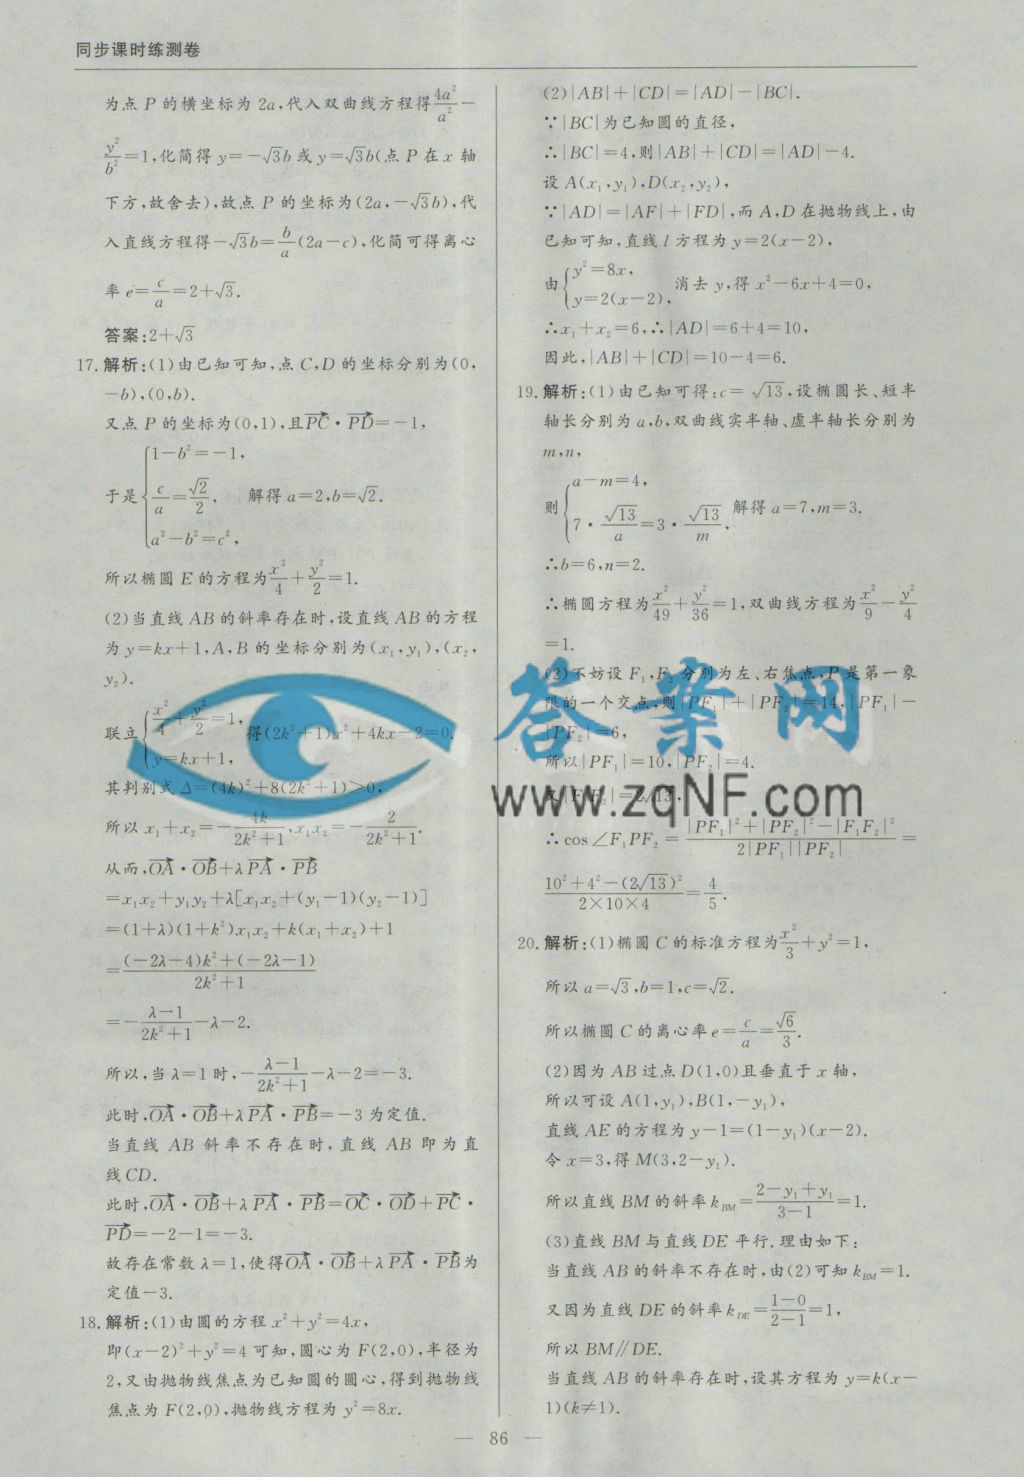 同步课时练测卷
为点 P 的横坐标为 2a,代入双曲线方程得4a²/a²−
y²/b²=1,化简得 y=−√3b 或 y=√3b(点 P 在 x 轴
下方,故舍去),故点 P 的坐标为(2a,−√3b),代
入直线方程得−√3b=b/a(2a−c),化简可得离心
率 e=c/a=2+√3.
答案:2+√3
17.解析:(1)由已知可知,点 C,D 的坐标分别为(0,
−b),(0,b).
又点 P 的坐标为(0,1),且PC→·PD→=−1,
于是{1−b²=−1, c/a=√2/2, a²−b²=c², 解得 a=2,b=√2.
所以椭圆 E 的方程为x²/4+y²/2=1.
(2)当直线 AB 的斜率存在时,设直线 AB 的方程
为 y=kx+1,A,B 的坐标分别为(x₁,y₁),(x₂,
y₂).
联立{x²/4+y²/2=1, y=kx+1, 得(2k²+1)x²+4kx−2=0.
其判别式 Δ=(4k)²+8(2k²+1)>0,
所以 x₁+x₂=−4k/(2k²+1),x₁x₂=−2/(2k²+1).
从而,OA→·OB→+λPA→·PB→
=x₁x₂+y₁y₂+λ[x₁x₂+(y₁−1)(y₂−1)]
=(1+λ)(1+k²)x₁x₂+k(x₁+x₂)+1
=((−2λ−4)k²+(−2λ−1))/(2k²+1)
=−(λ−1)/(2k²+1)−λ−2.
所以,当 λ=1 时,−(λ−1)/(2k²+1)−λ−2=−3.
此时,OA→·OB→+λPA→·PB→=−3 为定值.
当直线 AB 斜率不存在时,直线 AB 即为直
线CD.
此时,OA→·OB→+λPA→·PB→=OC→·OD→+PC→·
PD→=−2−1=−3.
故存在常数 λ=1,使得OA→·OB→+λPA→·PB→为
定值−3.
18.解析:(1)由圆的方程 x²+y²=4x,
即(x−2)²+y²=4 可知,圆心为 F(2,0),半径为
2,又由抛物线焦点为已知圆的圆心,得到抛物线
焦点为 F(2,0),抛物线方程为 y²=8x.
(2)|AB|+|CD|=|AD|−|BC|.
∵|BC|为已知圆的直径,
∴|BC|=4,则|AB|+|CD|=|AD|−4.
设 A(x₁,y₁),D(x₂,y₂),
∵|AD|=|AF|+|FD|,而 A,D 在抛物线上,由
已知可知,直线 l 方程为 y=2(x−2),
由{y²=8x, y=2(x−2), 消去 y,得 x²−6x+4=0,
∴x₁+x₂=6,∴|AD|=6+4=10,
因此,|AB|+|CD|=10−4=6.
19.解析:(1)由已知可得:c=√13,设椭圆长、短半
轴长分别为 a,b,双曲线实半轴、虚半轴长分别为
m,n,
则{a−m=4, 7·√13/a=3·√13/m, 解得 a=7,m=3.
∴b=6,n=2.
∴椭圆方程为x²/49+y²/36=1,双曲线方程为x²/9−y²/4
=1.
(2)不妨设 F₁,F₂ 分别为左、右焦点,P 是第一象
限的一个交点,则|PF₁|+|PF₂|=14,|PF₁|−
|PF₂|=6,
所以|PF₁|=10,|PF₂|=4.
又|F₁F₂|=2√13,
∴cos∠F₁PF₂=(|PF₁|²+|PF₂|²−|F₁F₂|²)/(2|PF₁||PF₂|)=
(10²+4²−(2√13)²)/(2×10×4)=4/5.
20.解析:(1)椭圆 C 的标准方程为x²/3+y²=1,
所以 a=√3,b=1,c=√2.
所以椭圆 C 的离心率 e=c/a=√6/3.
(2)因为 AB 过点 D(1,0)且垂直于 x 轴,
所以可设 A(1,y₁),B(1,−y₁),
直线 AE 的方程为 y−1=(1−y₁)(x−2).
令 x=3,得 M(3,2−y₁).
所以直线 BM 的斜率 k_BM=(2−y₁+y₁)/(3−1)=1.
(3)直线 BM 与直线 DE 平行.理由如下:
当直线 AB 的斜率不存在时,由(2)可知 k_BM=1.
又因为直线 DE 的斜率 k_DE=(1−0)/(2−1)=1,
所以 BM∥DE.
当直线 AB 的斜率存在时,设其方程为 y=k(x−
1)(k≠1).
答案网
www.zqNF.com
— 86 —